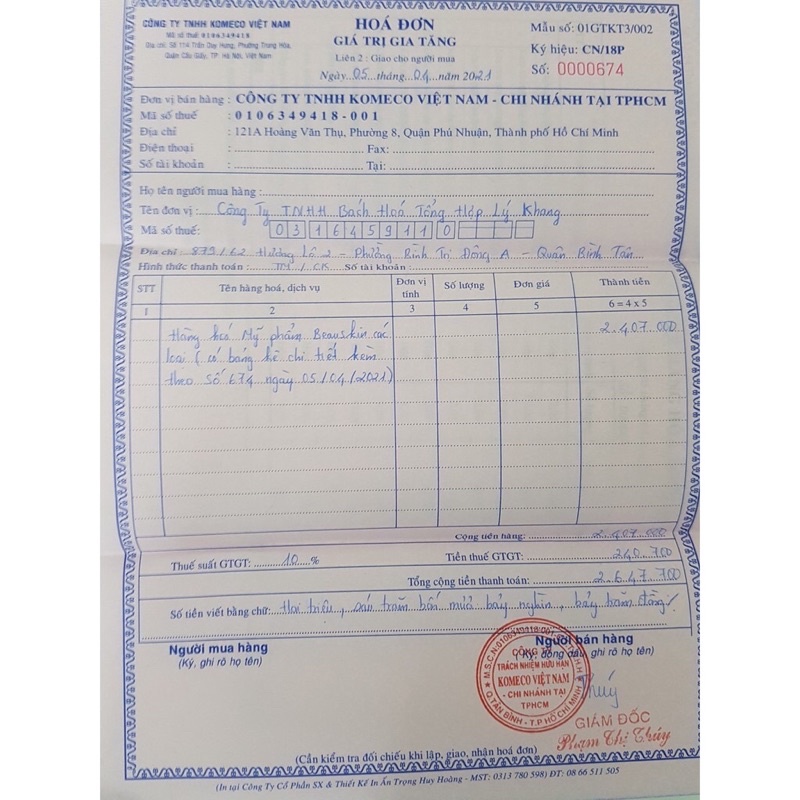 CÔNG TY TNHH KOMECO VIỆT NAM
Mã số thuế: 0106349418
Địa chỉ: Số 11A Trần Duy Hưng, Phường Trung Hòa,
Quận Cầu Giấy, TP. Hà Nội, Việt Nam
HOÁ ĐƠN
GIÁ TRỊ GIA TĂNG
Liên 2: Giao cho người mua
Ngày 05 tháng 04 năm 2021
Mẫu số: 01GTKT3/002
Ký hiệu: CN/18P
Số: 0000674
Đơn vị bán hàng : CÔNG TY TNHH KOMECO VIỆT NAM - CHI NHÁNH TẠI TPHCM
Mã số thuế : 0106349418-001
Địa chỉ : 121A Hoàng Văn Thụ, Phường 8, Quận Phú Nhuận, Thành phố Hồ Chí Minh
Điện thoại : Fax:
Số tài khoản : Tại:
Họ tên người mua hàng :
Tên đơn vị : Công Ty TNHH Bách Hoá Tổng Hợp Lý Khang
Mã số thuế: 0316459110
Địa chỉ : 879/62 Hương Lộ 2 - Phường Bình Trị Đông A - Quận Bình Tân
Hình thức thanh toán : TM/CK Số tài khoản :
STT Tên hàng hoá, dịch vụ Đơn vị tính Số lượng Đơn giá Thành tiền
1 2 3 4 5 6 = 4 x 5
Hàng hoá Mỹ phẩm Beauskin các 2.407.000
loại (có bảng kê chi tiết kèm
theo số 674 ngày 05/04/2021)
Cộng tiền hàng: 2.407.000
Thuế suất GTGT: 10 % Tiền thuế GTGT: 240.700
Tổng cộng tiền thanh toán: 2.647.700
Số tiền viết bằng chữ: Hai triệu, sáu trăm bốn mươi bảy nghìn, bảy trăm đồng/
Người mua hàng
(Ký, ghi rõ họ tên)
Người bán hàng
(Ký, đóng dấu, ghi rõ họ tên)
M.S.C.N:0106349418-001-C.T.T.N.H.H
CÔNG TY
TRÁCH NHIỆM HỮU HẠN
KOMECO VIỆT NAM
- CHI NHÁNH TẠI
TPHCM
Q.TÂN BÌNH - T.P HỒ CHÍ MINH
Thúy
GIÁM ĐỐC
Phạm Thị Thúy
(Cần kiểm tra đối chiếu khi lập, giao, nhận hoá đơn)
(In tại Công Ty Cổ Phần SX & Thiết Kế In Ấn Trọng Huy Hoàng - MST: 0313 780 598) ĐT: 08 66 511 505